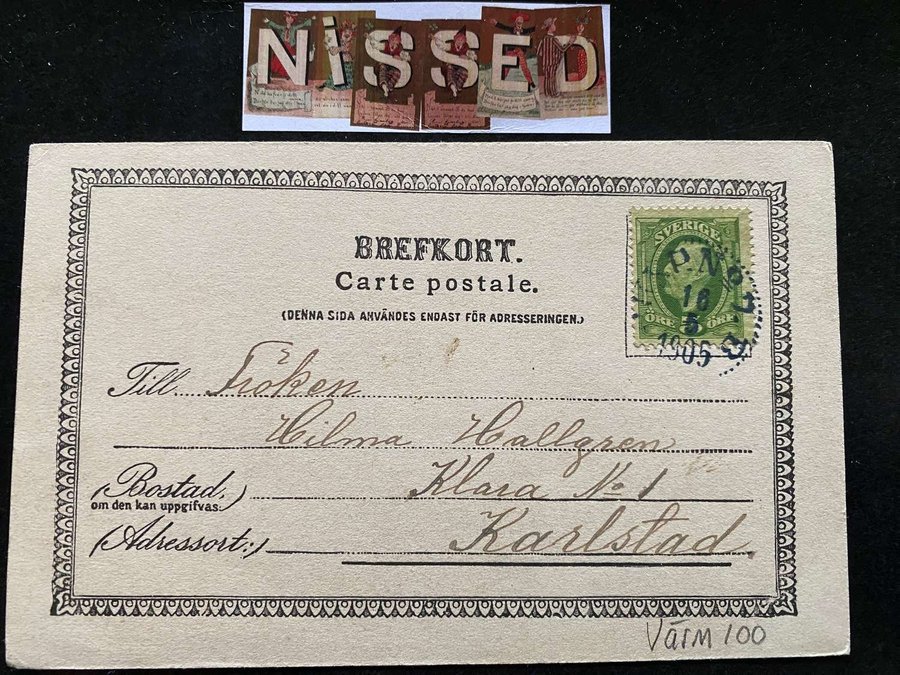 NiSSED
SVERIGE
BREFKORT.
Carte postale.
(DENNA SIDA ANVÄNDES ENDAST FÖR ADRESSERINGEN.)
16
5
1905
ÖRE 5 ÖRE
Till Fröken
Hilma Hallgren
(Bostad,) Klara No 1
om den kan uppgifvas:
(Adressort:) Karlstad.
Värm 100